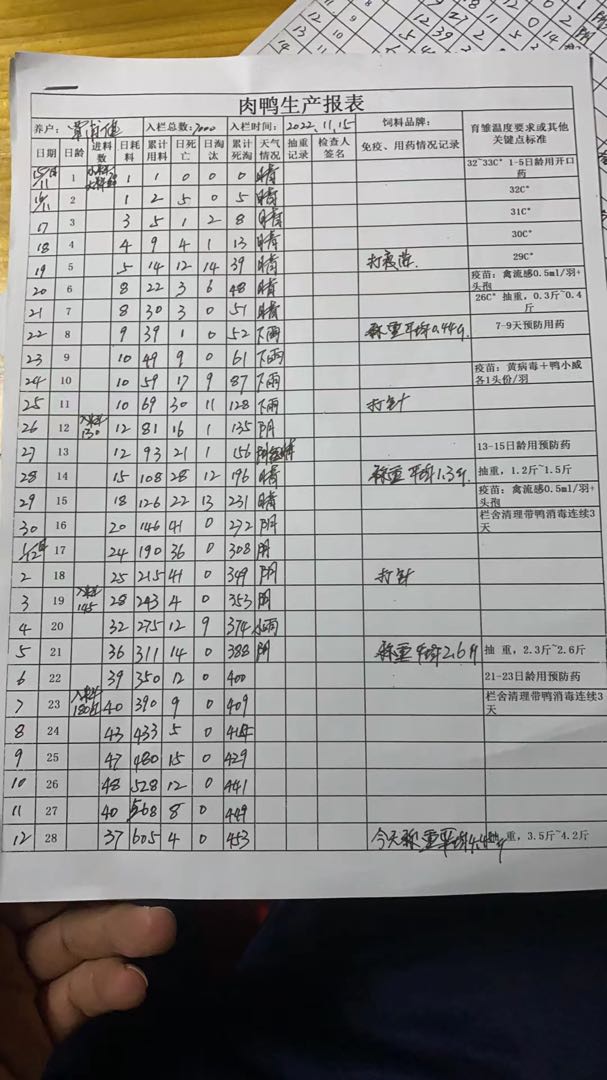 肉鸭生产报表
养户: 入栏总数:7000 入栏时间: 2022.11.15 饲料品牌: 育雏温度要求或其他关键点标准
日期 日龄 进料数 日耗料 累计用料 日死亡 日淘汰 累计死淘 天气情况 抽重记录 检查人签名 免疫、用药情况记录
15/11 1 1 1 0 0 0 晴 32~33C° 1-5日龄用开口药
16/11 2 1 2 5 0 5 晴 32C°
17 3 3 5 1 2 8 晴 31C°
18 4 4 9 4 1 13 晴 30C°
19 5 5 14 12 14 39 晴 打疫苗. 29C°
20 6 8 22 3 6 48 晴 疫苗:禽流感0.5ml/羽+头孢
21 7 8 30 3 0 51 晴 26C° 抽重,0.3斤~0.4斤
22 8 9 39 1 0 52 下雨 称重平均0.44斤. 7-9天预防用药
23 9 10 49 9 0 61 下雨
24 10 10 59 17 9 87 下雨 疫苗:黄病毒+鸭小威各1头份/羽
25 11 10 69 30 11 128 下雨 打针
26 12 入料130 12 81 16 1 135 阴
27 13 12 93 21 1 156 13-15日龄用预防药
28 14 15 108 28 12 196 晴 称重平均1.3斤. 抽重,1.2斤~1.5斤
29 15 18 126 22 13 231 晴 疫苗:禽流感0.5ml/羽+头孢
30 16 20 146 41 0 272 阴 栏舍清理带鸭消毒连续3天
17 24 190 36 0 308 阴
2 18 25 215 41 0 349 阴 打针
3 19 入料145 28 243 4 0 353 阴
4 20 32 275 12 9 374 小雨
5 21 36 311 14 0 388 阴 称重平均2.6斤 抽重,2.3斤~2.6斤
6 22 39 350 12 0 400 21-23日龄用预防药
7 23 入料180包 40 390 9 0 409 栏舍清理带鸭消毒连续3天
8 24 43 433 5 0 414
9 25 47 480 15 0 429
10 26 48 528 12 0 441
11 27 40 568 8 0 449
12 28 37 605 4 0 453 今天称重平均 重,3.5斤~4.2斤